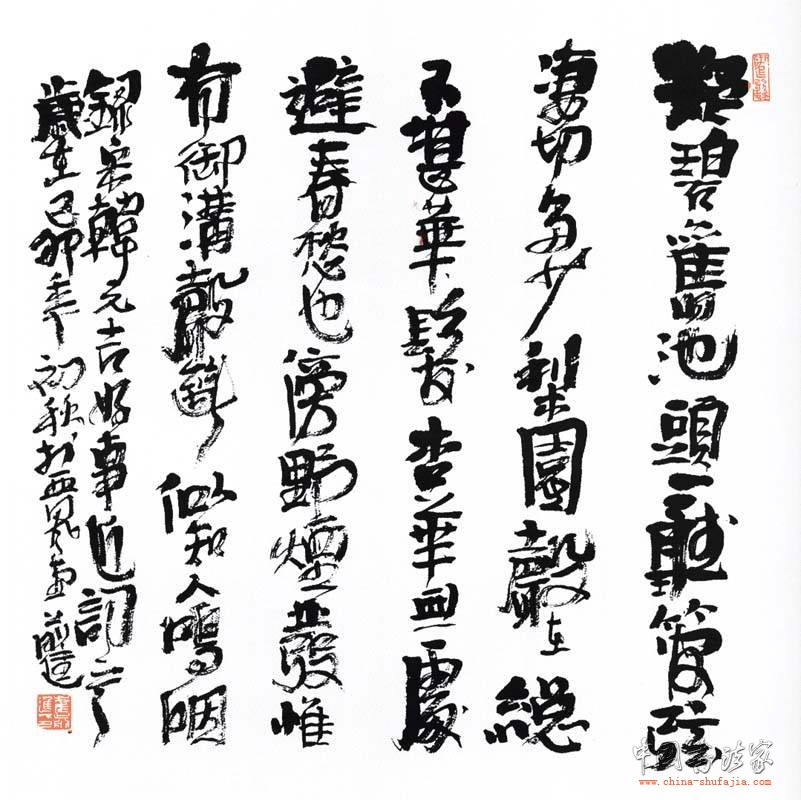 凝碧舊池頭一聽管弦
淒切多少梨園聲在總
不堪華髮杏華無處
避春愁也傍野煙發惟
有御溝聲斷似知人嗚咽
錄宋韓元吉好事近詞
歲在己卯年初秋於西
中国书法家
www.china-shufajia.com